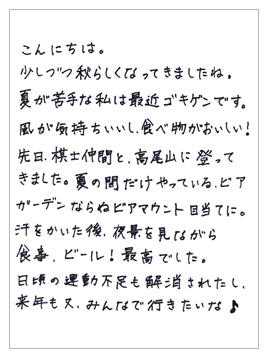 こんにちは。
少しづつ秋らしくなってきましたね。
夏が苦手な私は最近ゴキゲンです。
風が気持ちいいし、食べ物がおいしい!
先日、棋士仲間と、高尾山に登って
きました。夏の間だけやっている、ビア
ガーデンならぬビアマウント目当てに。
汗をかいた後、夜景を見ながら
食事、ビール!最高でした。
日頃の運動不足も解消されたし、
来年も又、みんなで行きたいな♪